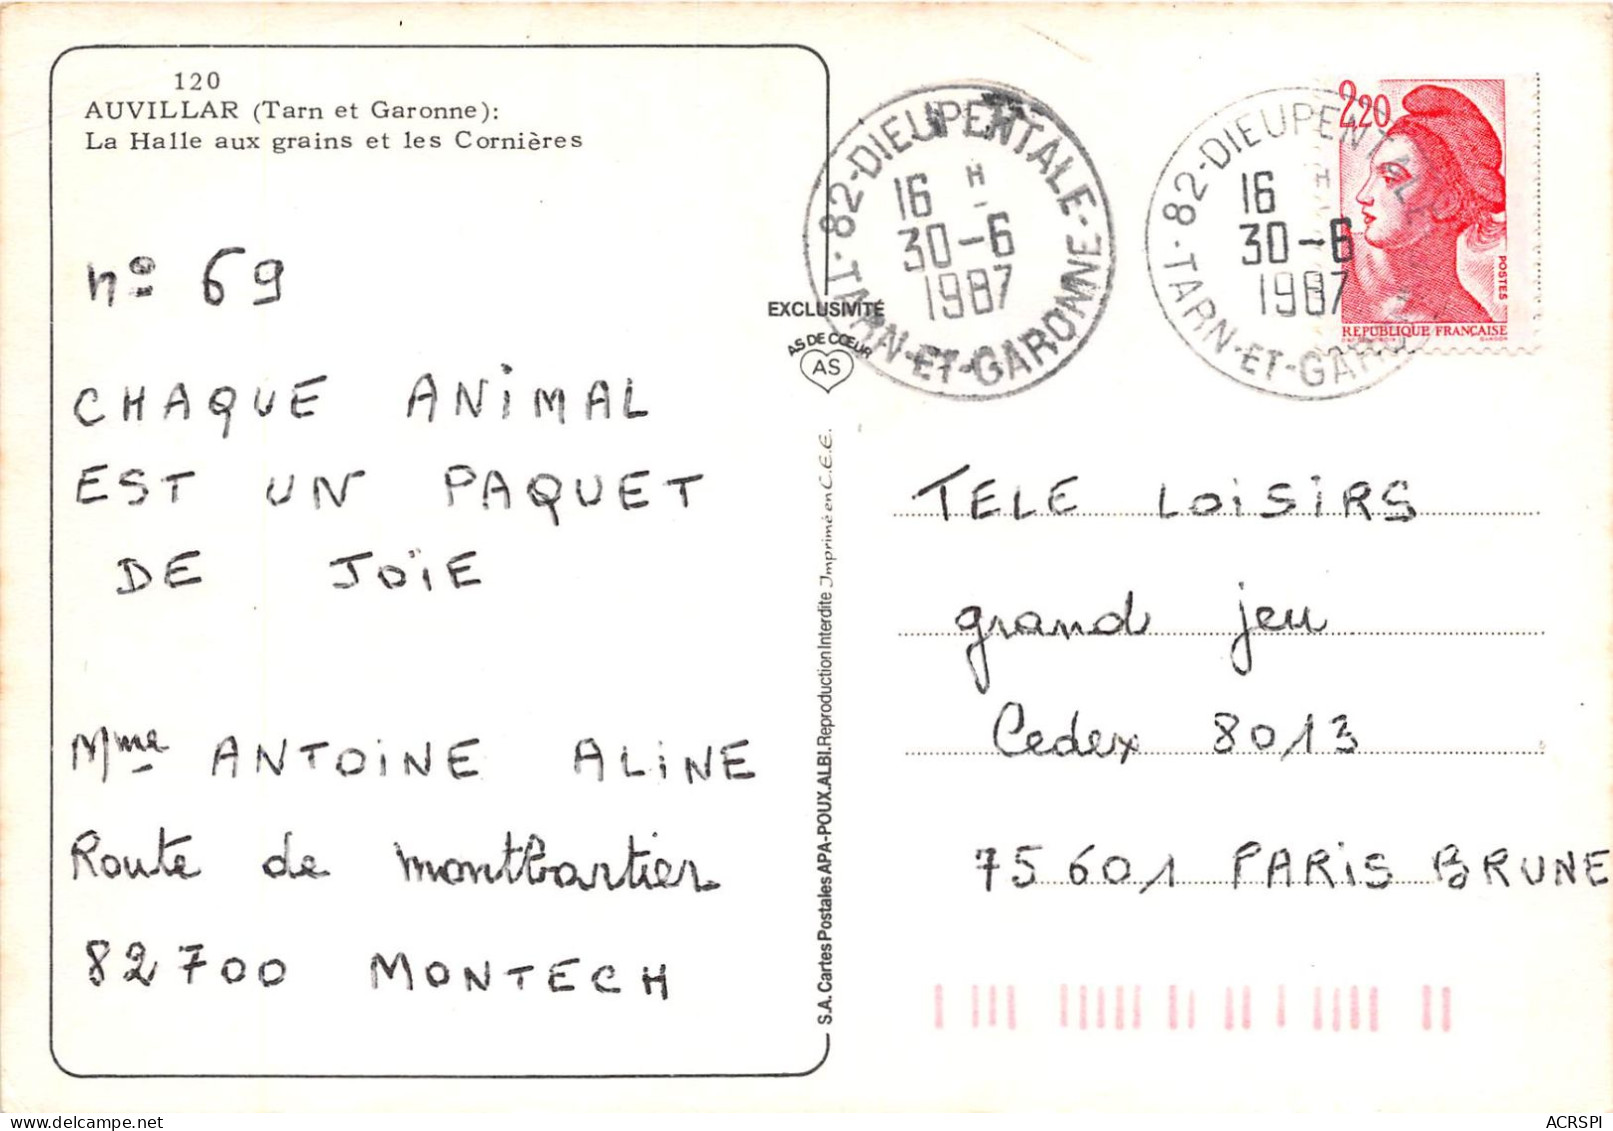 120
AUVILLAR (Tarn et Garonne):
La Halle aux grains et les Cornières
nº 69
CHAQUE ANIMAL
EST UN PAQUET
DE JOÏE
Mme ANTOINE ALINE
Route de montbartier
82700 MONTECH
EXCLUSIVITÉ
AS DE CŒUR
AS
S.A. Cartes Postales APA-POUX. ALBI. Reproduction Interdite Imprimé en C.E.E.
82-DIEUPENTALE-
16 H
30-6
1987
TARN-ET-GARONNE
82-DIEUPENTALE
16 H
30-6
1987
TARN-ET-GARO
2,20
POSTES
REPUBLIQUE FRANÇAISE
TELE LOISIRS
grand jeu
Cedex 8013
75601 PARIS BRUNE
ACRSPI